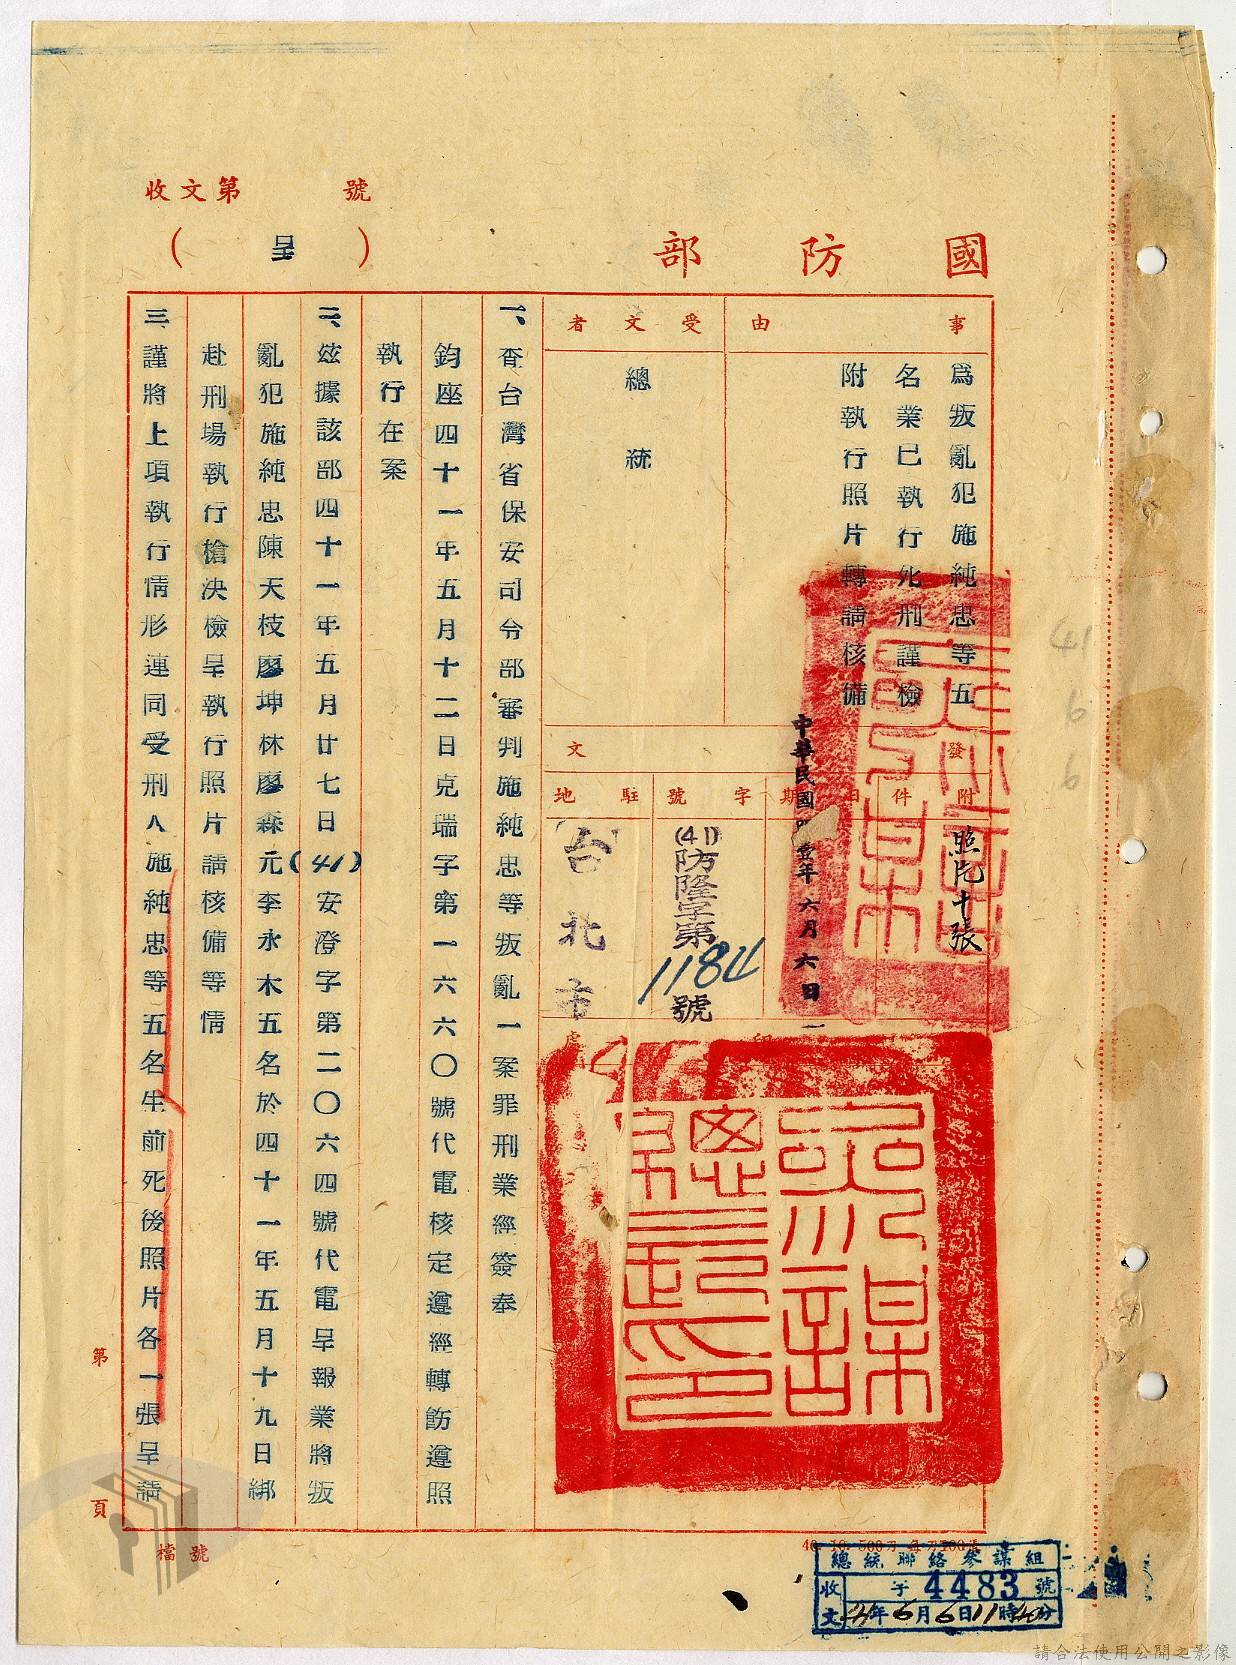 收文第　　號
國防部
（呈）
事由
為叛亂犯施純忠等五
名業已執行死刑謹檢
附執行照片轉請核備
受文者
總統
發文
附件
照片十張
日期
中華民國四壹年六月六日
字號
(41)防隆字第1184號
駐地
台北市
參謀總長印
一、查台灣省保安司令部審判施純忠等叛亂一案罪刑業經簽奉
鈞座四十一年五月十二日克瑞字第一六六〇號代電核定遵經轉飭遵照
執行在案
二、茲據該部四十一年五月廿七日(41)安澄字第二〇六四號代電呈報業將叛
亂犯施純忠陳天枝廖坤林廖森元李永木五名於四十一年五月十九日綁
赴刑場執行槍決檢呈執行照片請核備等情
三、謹將上項執行情形連同受刑人施純忠等五名生前死後照片各一張呈請
第　頁
檔號
總統聯絡參謀組
收文　字4483號
41年6月6日11時40分
41
6
6
請合法使用公開之影像